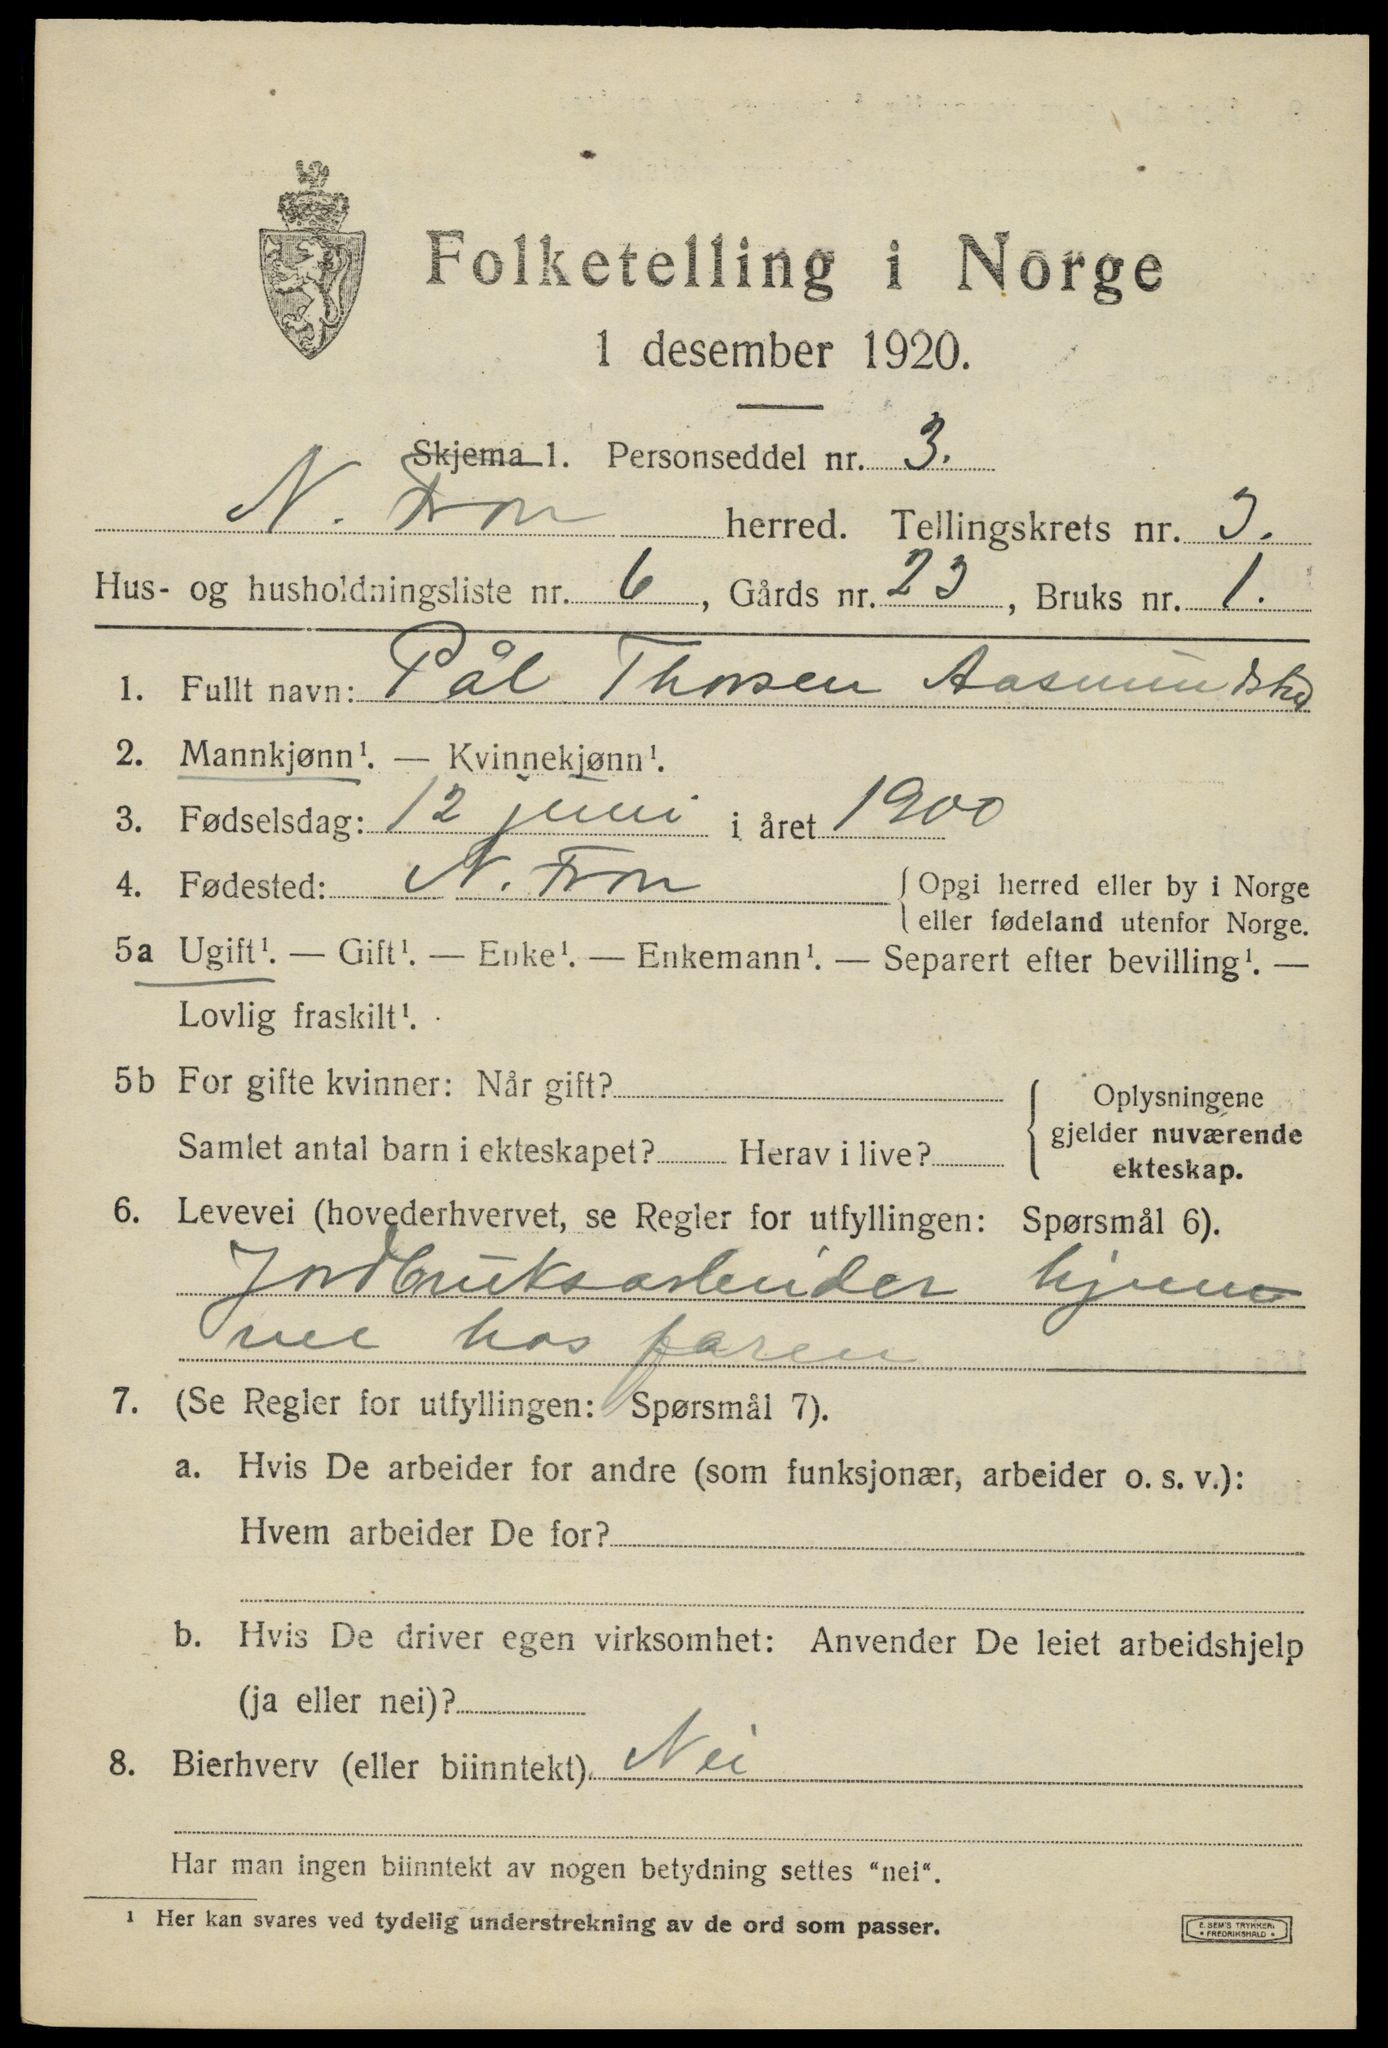 Folketelling i Norge
1 desember 1920.
Skjema 1. Personseddel nr. 3.
N. Fron herred. Tellingskrets nr. 3.
Hus- og husholdningsliste nr. 6, Gårds nr. 23, Bruks nr. 1.
1. Fullt navn: Pål Thorsen
2. Mannkjønn¹. — Kvinnekjønn¹.
3. Fødselsdag: 12 juni i året 1900
4. Fødested: N. Fron { Opgi herred eller by i Norge
eller fødeland utenfor Norge.
5a Ugift¹. — Gift¹. — Enke¹. — Enkemann¹. — Separert efter bevilling¹. —
Lovlig fraskilt¹.
5b For gifte kvinner: Når gift?
Samlet antal barn i ekteskapet? Herav i live?
{ Oplysningene
gjelder nuværende
ekteskap.
6. Levevei (hovederhvervet, se Regler for utfyllingen: Spørsmål 6).
Jordbruksarbeider hjem
me hos faren
7. (Se Regler for utfyllingen: Spørsmål 7).
a. Hvis De arbeider for andre (som funksjonær, arbeider o. s. v.):
Hvem arbeider De for?
b. Hvis De driver egen virksomhet: Anvender De leiet arbeidshjelp
(ja eller nei)?
8. Bierhverv (eller biinntekt). Nei
Har man ingen biinntekt av nogen betydning settes “nei“.
¹ Her kan svares ved tydelig understrekning av de ord som passer.
E. SEM'S TRYKKERI
* FREDRIKSHALD *